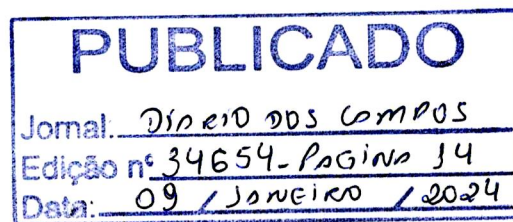 PUBLICADO
Jornal: DIÁRIO DOS CAMPOS
Edição nº 34654 - PAGINA 14
Data: 09 / JANEIRO / 2024